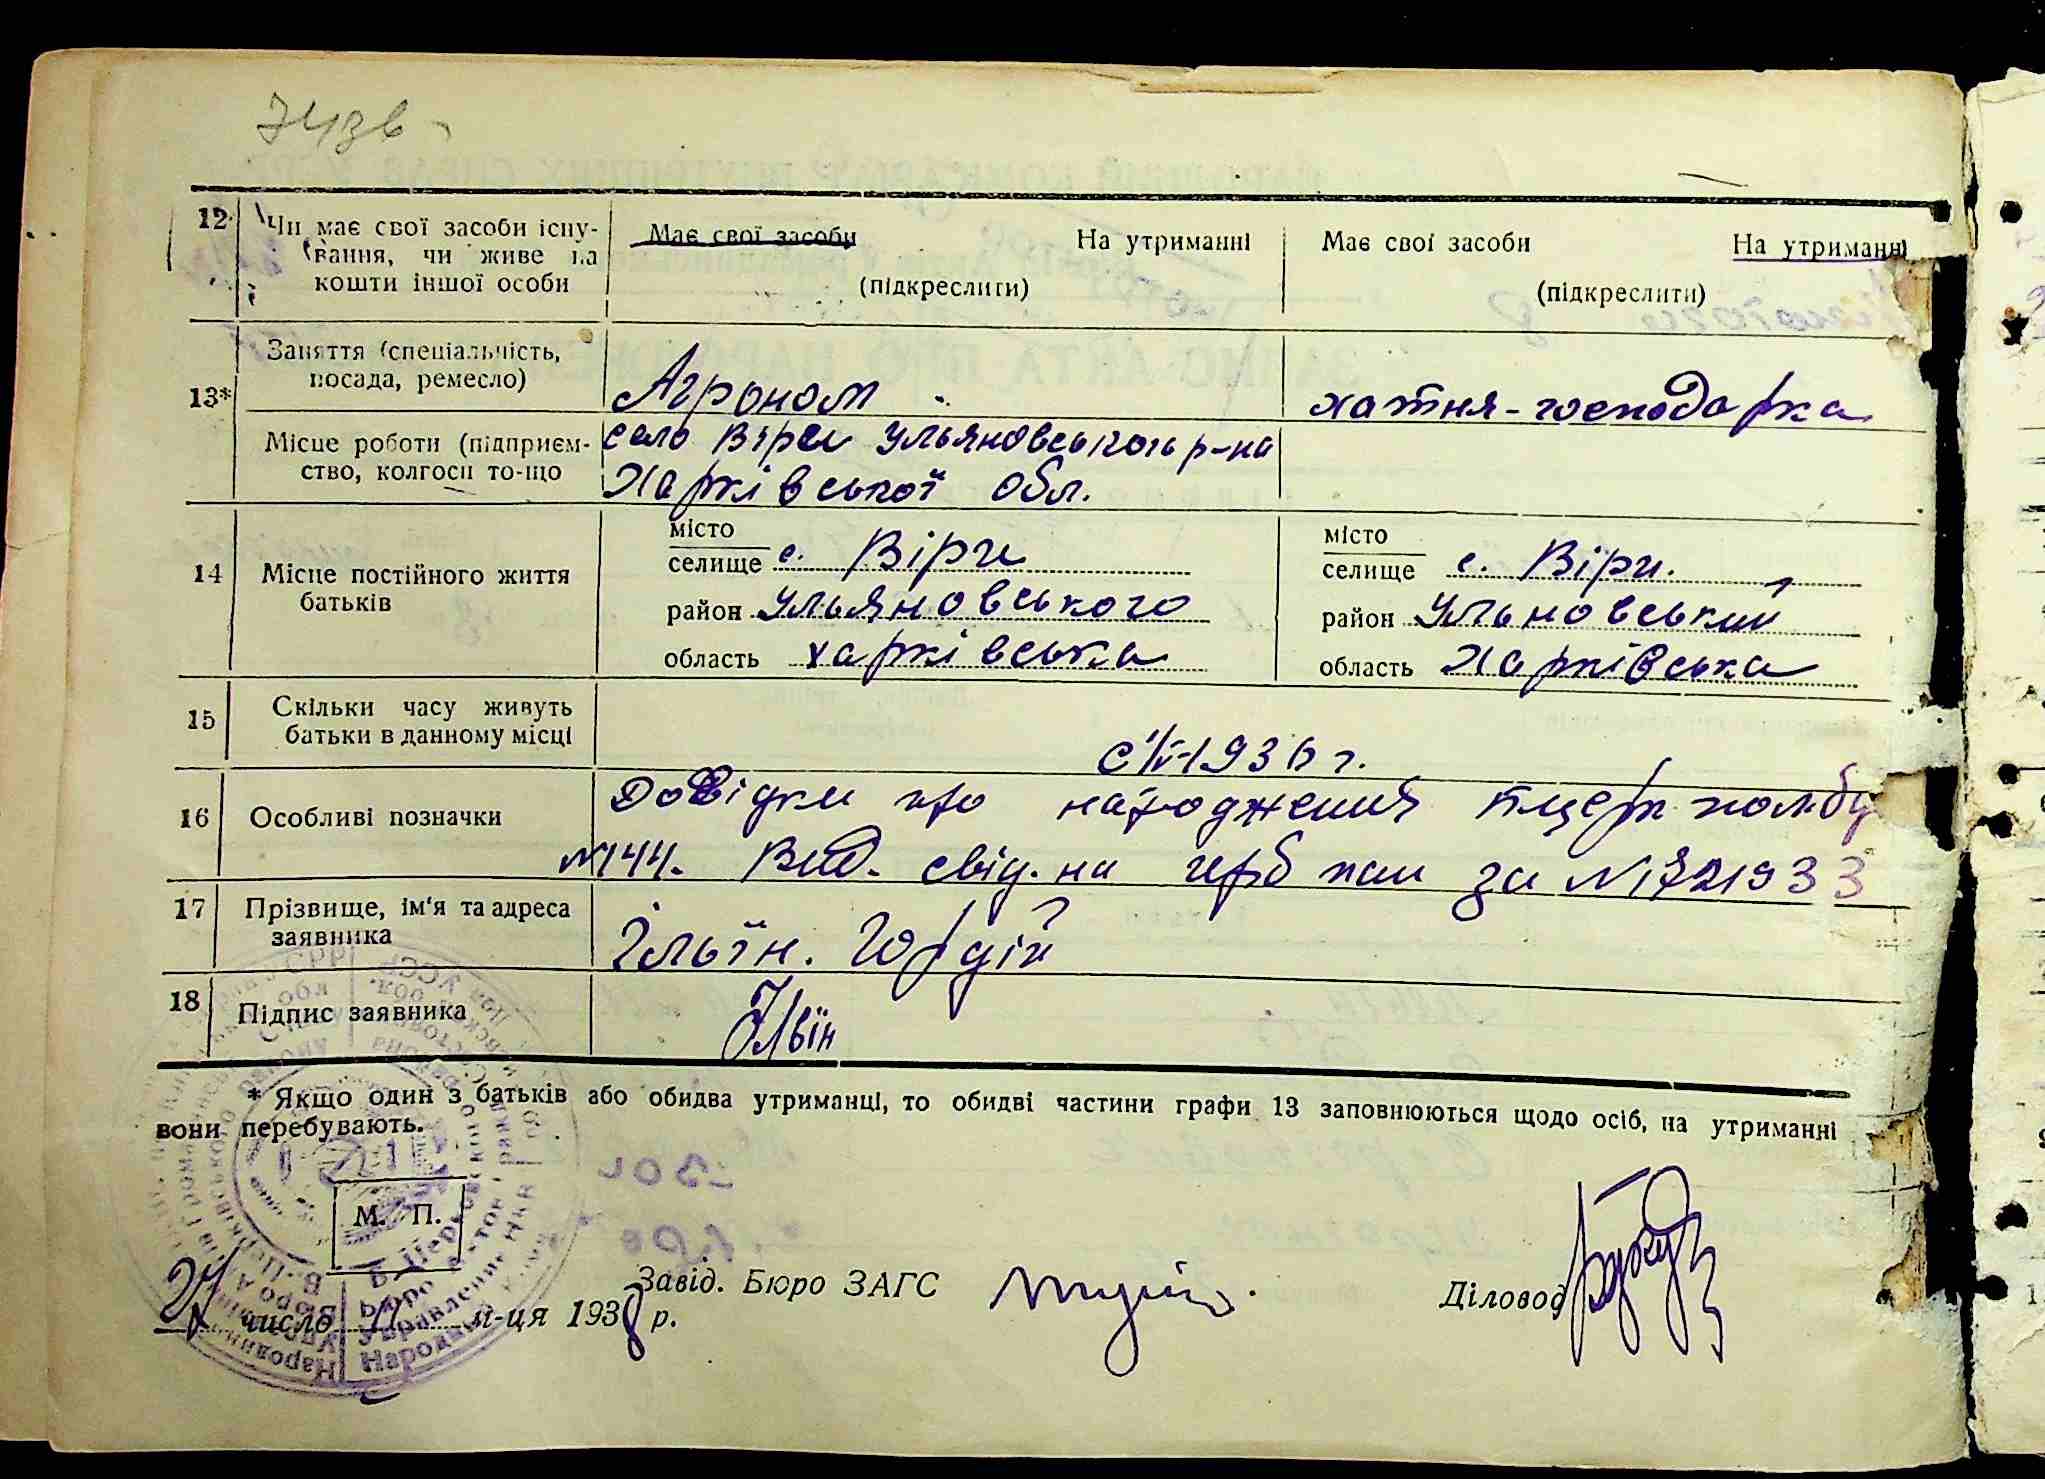 12 Чи має свої засоби існу-
вання, чи живе на
кошти іншої особи
Має свої засоби На утриманні
(підкреслити)
Має свої засоби На утриманні
(підкреслити)
13* Заняття (спеціальність,
посада, ремесло)
Агроном
хатня-господарка
Місце роботи (підприєм-
ство, колгосп то-що
село Віри Ульяновського р-на
Харківської обл.
14 Місце постійного життя
батьків
місто
селище с. Віри
район Ульяновського
область харківська
місто
селище с. Віри.
район Ульновський
область Харківська
15 Скільки часу живуть
батьки в данному місці
с 1936 г.
16 Особливі позначки
Довідки про народження
№144. Вид. свід. на герб за №
17 Прізвище, ім'я та адреса
заявника
Ільїн. Гордій
18 Підпис заявника
Ільїн
* Якщо один з батьків або обидва утриманці, то обидві частини графи 13 заповнюються щодо осіб, на утриманні
вони перебувають.
М. П.
27 число 11 м-ця 1938 р.
Завід. Бюро ЗАГС
Діловод